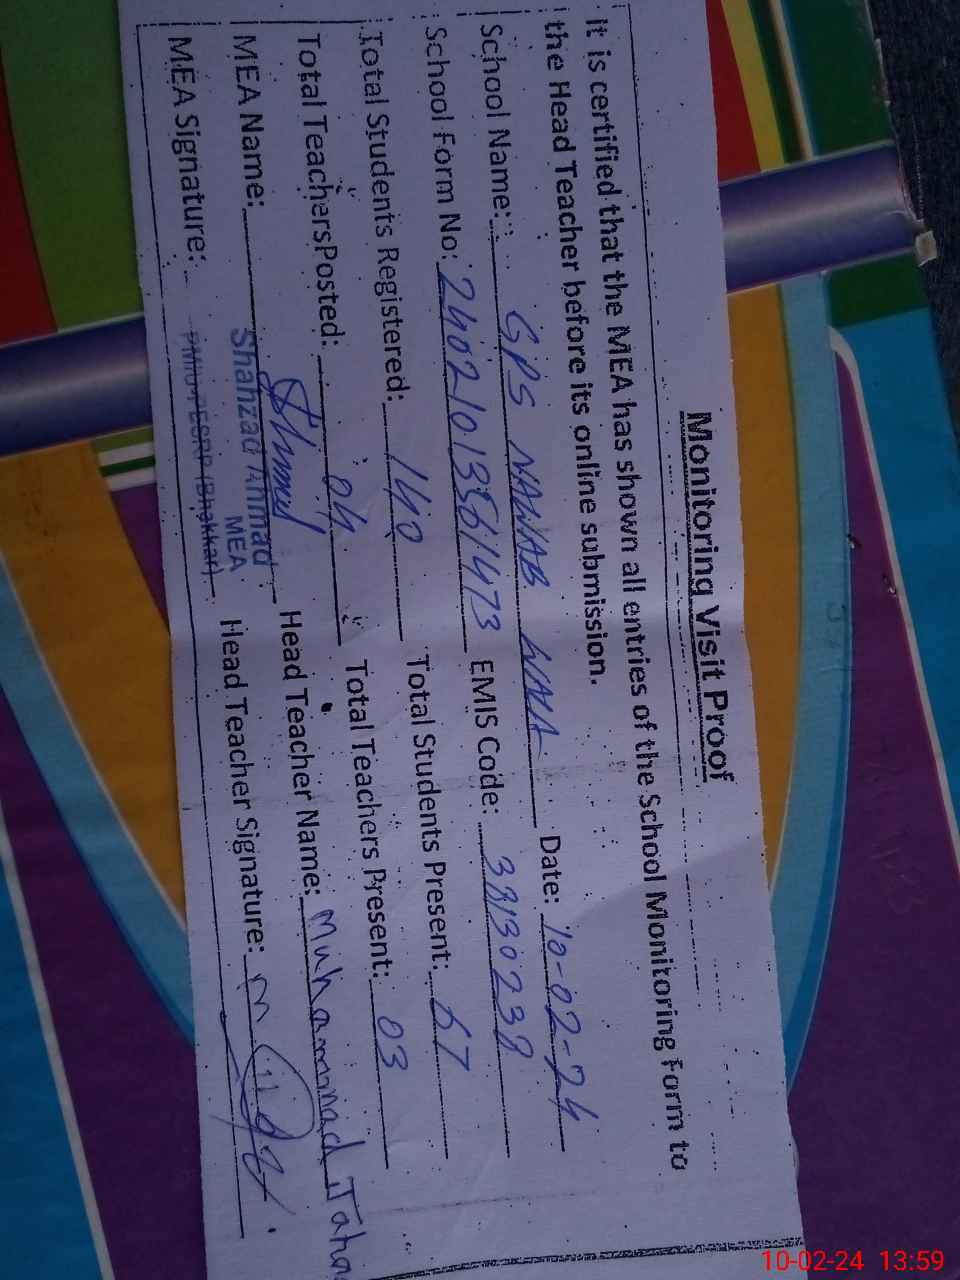 Monitoring Visit Proof
It is certified that the MEA has shown all entries of the School Monitoring Form to
the Head Teacher before its online submission.
School Name: GPS NAWAB WALA Date: 10-02-24
School Form No: EMIS Code: 38130238
Total Students Registered: 140 Total Students Present: 67
Total TeachersPosted: 04 Total Teachers Present: 03
MEA Name: Head Teacher Name: Muhammad
Shahzad Ahmad
MEA
MEA Signature: Head Teacher Signature:
(Bhakkar)
10-02-24 13:59